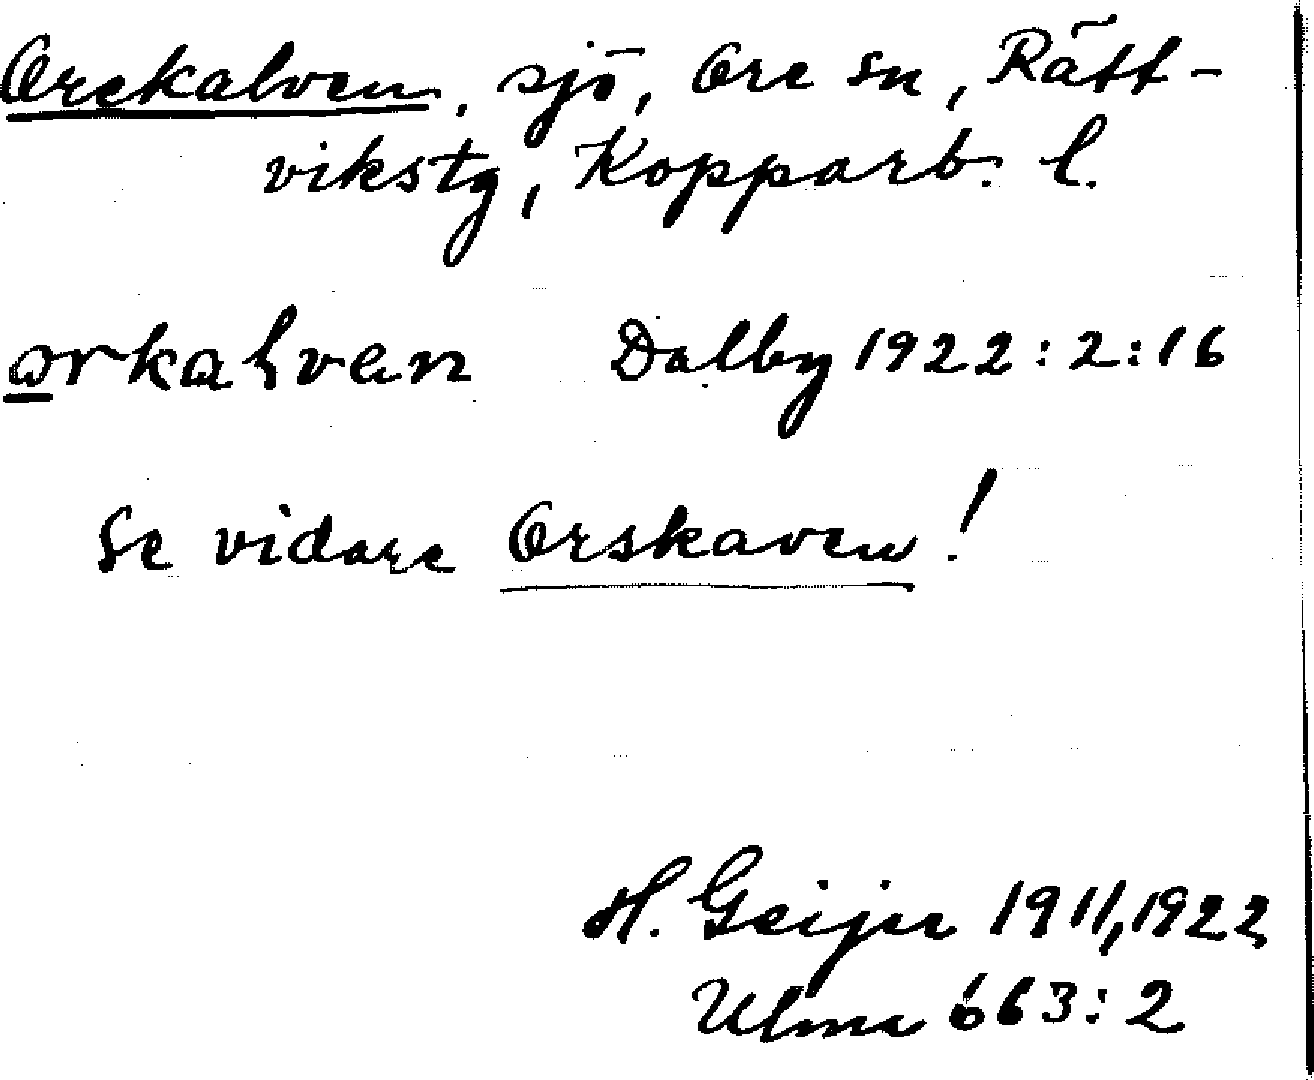 Orekalven, sjö, Ore sn, Rätt-
vikstg, Kopparb. l.
orkalven Dalby 1922:2:16
Se vidare Orskaven!
H. Geijer 1911, 1922
Ulma 663:2